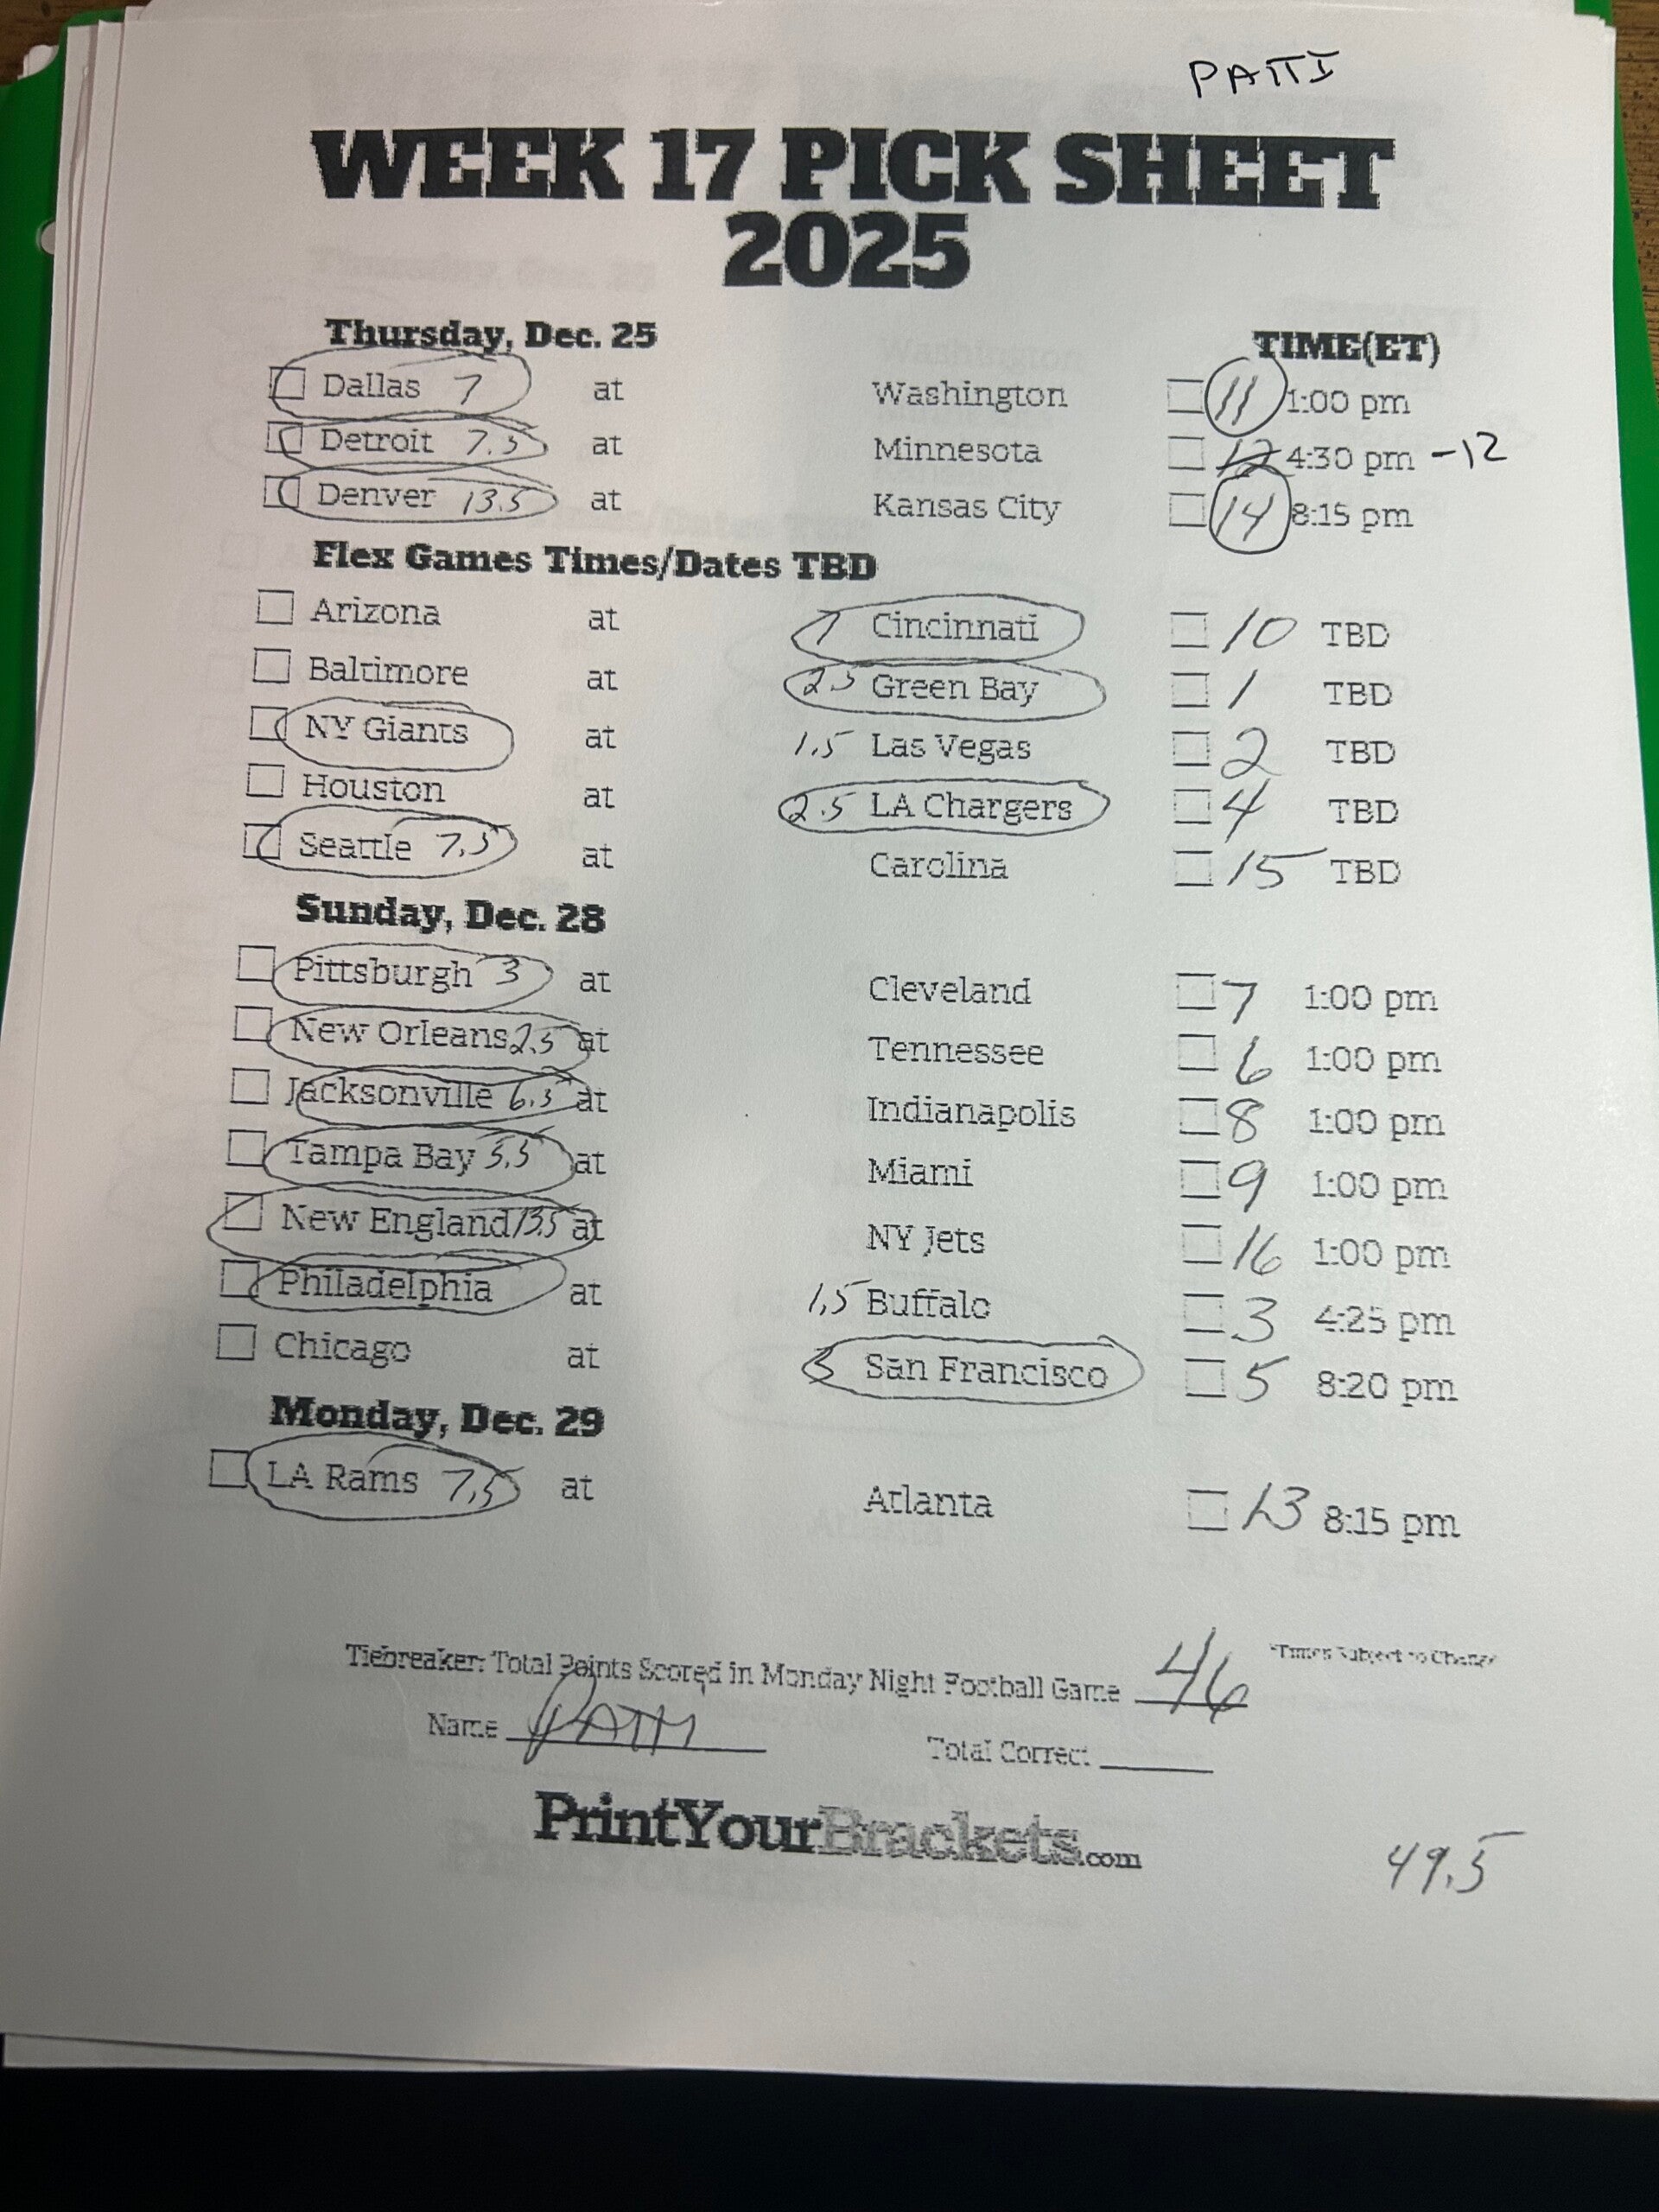 PATTI
WEEK 17 PICK SHEET
2025
Thursday, Dec. 25 TIME(ET)
Dallas 7 at Washington 11 1:00 pm
Detroit 7.5 at Minnesota 12 4:30 pm -12
Denver 13.5 at Kansas City 14 8:15 pm
Flex Games Times/Dates TBD
Arizona at 7 Cincinnati 10 TBD
Baltimore at 2.5 Green Bay 1 TBD
NY Giants at 1.5 Las Vegas 2 TBD
Houston at 2.5 LA Chargers 4 TBD
Seattle 7.5 at Carolina 15 TBD
Sunday, Dec. 28
Pittsburgh 3 at Cleveland 7 1:00 pm
New Orleans 2.5 at Tennessee 6 1:00 pm
Jacksonville 6.5 at Indianapolis 8 1:00 pm
Tampa Bay 5.5 at Miami 9 1:00 pm
New England 13.5 at NY Jets 16 1:00 pm
Philadelphia at 1.5 Buffalo 3 4:25 pm
Chicago at 3 San Francisco 5 8:20 pm
Monday, Dec. 29
LA Rams 7.5 at Atlanta 13 8:15 pm
*Times Subject to Change
Tiebreaker: Total Points Scored in Monday Night Football Game 46
Name PATTI Total Correct
PrintYourBrackets.com
49.5